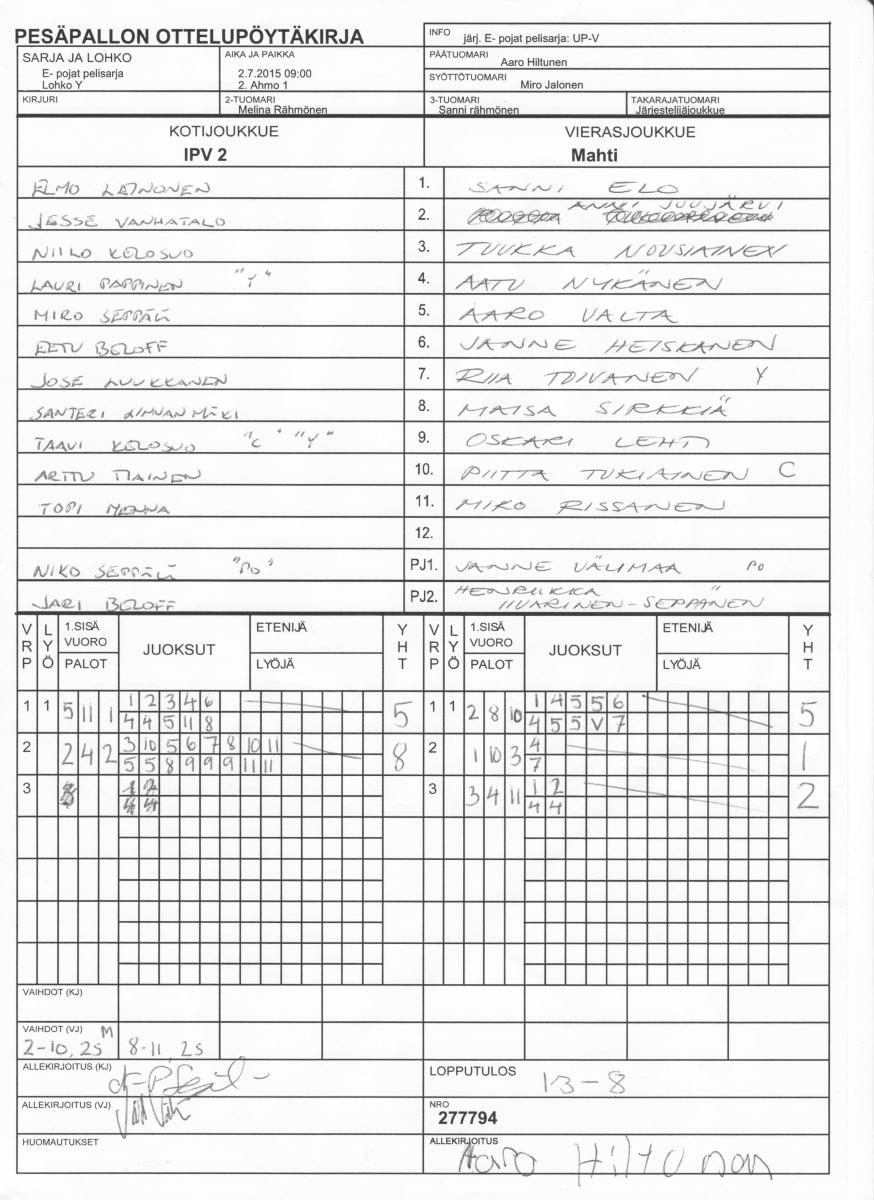 PESÄPALLON OTTELUPÖYTÄKIRJA
INFO järj. E- pojat pelisarja: UP-V
SARJA JA LOHKO
E- pojat pelisarja
Lohko Y
AIKA JA PAIKKA
2.7.2015 09:00
2. Ahmo 1
PÄÄTUOMARI
Aaro Hiltunen
SYÖTTÖTUOMARI
Miro Jalonen
KIRJURI
2-TUOMARI
Melina Rähmönen
3-TUOMARI
Sanni rähmönen
TAKARAJATUOMARI
Järjestelijäjoukkue
KOTIJOUKKUE
IPV 2
VIERASJOUKKUE
Mahti
ELMO 1. SANNI ELO
JESSE VANHATALO 2. ANNI JUUJÄRVI
NIILO KELOSUO 3. TUUKKA NOUSIAINEN
LAURI PAPPINEN "Y" 4. AATU NYKÄNEN
MIRO SEPPÄLÄ 5. AARO VALTA
EETU BELOFF 6. JANNE HEISKANEN
JOSE LUUKKANEN 7. RIIA TOIVANEN Y
SANTERI LINNANMÄKI 8. MAISA SIRKKIÄ
TAAVI KELOSUO "C" "Y" 9. OSKARI LEHTI
ARTTU TIAINEN 10. PIITTA TUKIAINEN C
TOPI MENNA 11. MIKO RISSANEN
12.
NIKO SEPPÄLÄ "PO" PJ1. JANNE VÄLIMAA PO
JARI BELOFF PJ2. HENRIIKKA
IIVARINEN-SEPPÄNEN
VRP LYÖ 1.SISÄ VUORO PALOT JUOKSUT ETENIJÄ LYÖJÄ YHT VRP LYÖ 1.SISÄ VUORO PALOT JUOKSUT ETENIJÄ LYÖJÄ YHT
1 1 5 11 1 1 2 3 4 6 5 1 1 2 8 10 1 4 5 5 6 5
4 4 5 11 8 4 5 5 V 7
2 2 4 2 3 10 5 6 7 8 10 11 8 2 1 10 3 4 1
5 5 8 9 9 9 11 11 7
3 3 3 4 11 1 2 2
4 4
VAIHDOT (KJ)
VAIHDOT (VJ) M
2-10, 2s 8-11, 2s
ALLEKIRJOITUS (KJ)
LOPPUTULOS 13-8
ALLEKIRJOITUS (VJ)
NRO
277794
HUOMAUTUKSET
ALLEKIRJOITUS
Aaro Hiltunen